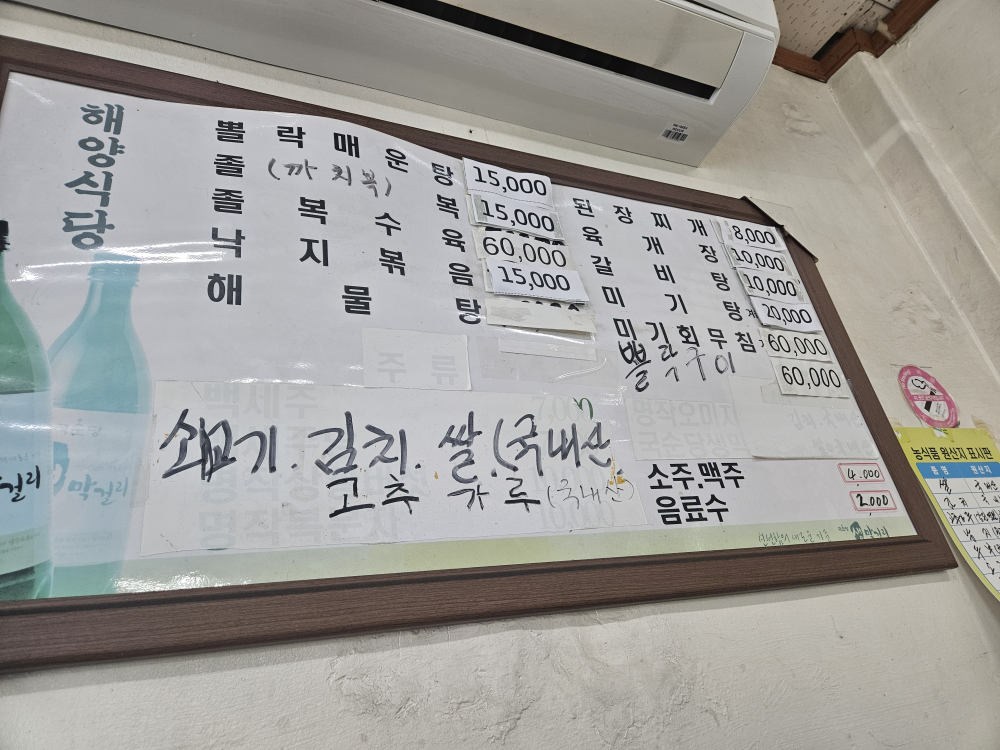 해양식당
뽈락매운탕 15,000
졸(까치복)복 15,000
졸복수육 60,000
낙지볶음 15,000
해물탕
된장찌개 8,000
육개장 10,000
갈비탕 10,000
미기탕 20,000
미기회무침 60,000
뽈락구이 60,000
주류
쇠고기. 김치. 쌀.(국내산
고추가루(국내산)
소주.맥주 4,000
음료수 2,000
막걸리
걸리
농식품 원산지 표시판
품명 원산지
쌀